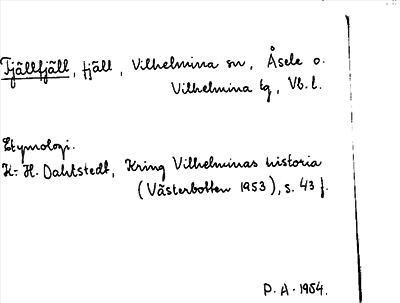 Fjällfjäll, fjäll, Vilhelmina sn, Åsele o.
Vilhelmina tg, Vb.l.
Etymologi.
K.-H. Dahlstedt, Kring Vilhelminas historia
(Västerbotten 1953), s. 43 f.
P.A. 1954.